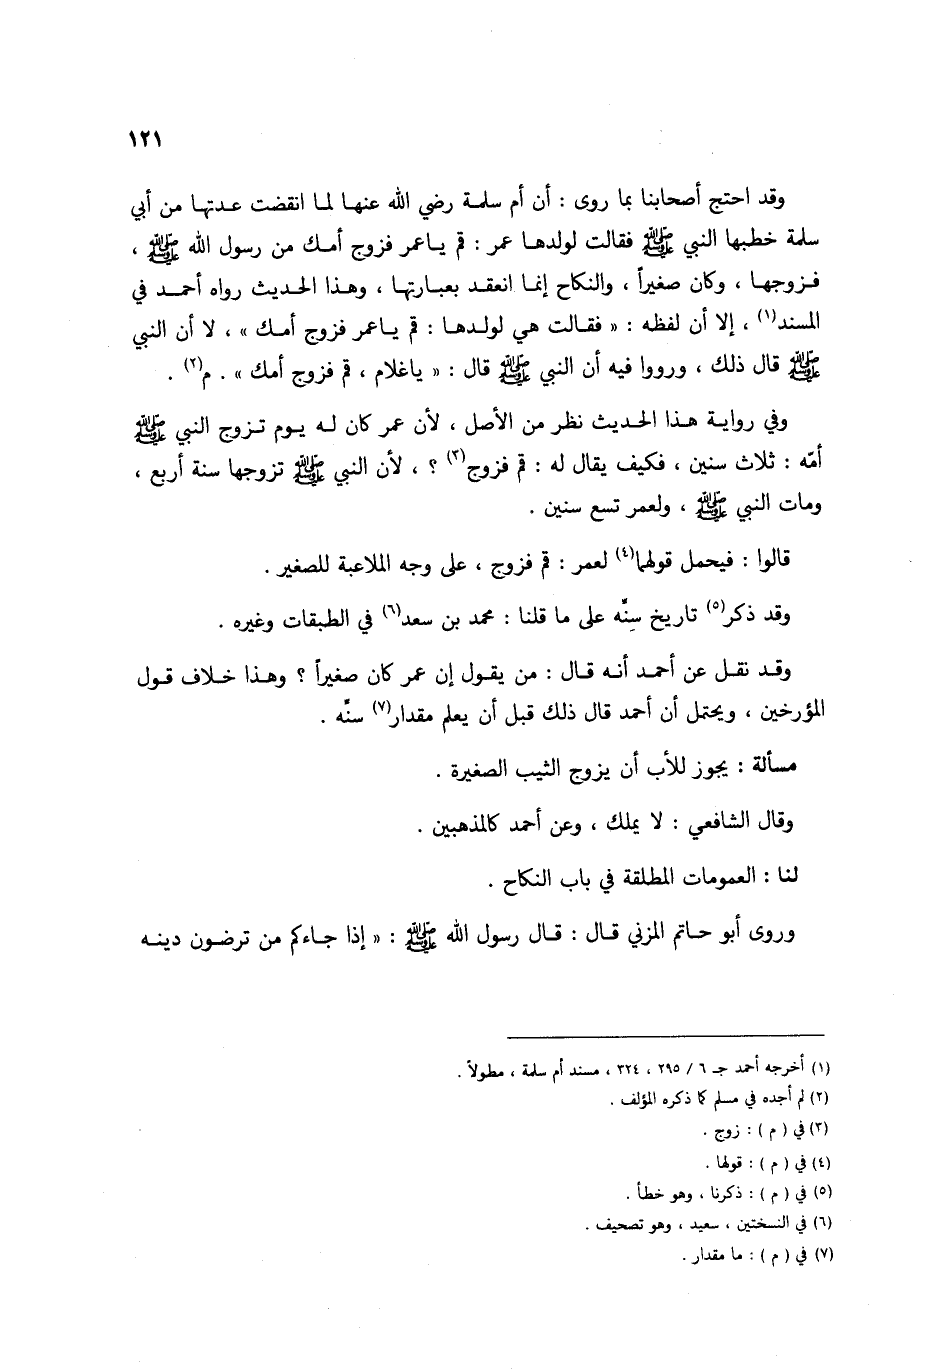 ١٢١
وقد احتج أصحابنا بما روى : أن أم سلمة رضي الله عنهـا لمـا انقضت عدتهـا من أبي
سلمة خطبها النبي ﷺ فقالت لولدهـا عمر : قم يـاعمر فزوج أمـك من رسول الله ﷺ ،
فـزوجهـا ، وكان صغيراً ، والنكاح إنمـا انعقـد بعبـارتهـا ، وهـذا الحـديث رواه أحمـد في
المسند(١) ، إلا أن لفظه : « فقـالت هي لولـدهـا : قم يـاعمر فزوج أمـك » ، لا أن النبي
ﷺ قال ذلك ، ورووا فيه أن النبي ﷺ قال : « ياغلام ، قم فزوج أمك » . م(٢) .
وفي روايـة هـذا الحـديث نظر من الأصل ، لأن عمر كان لـه يـوم تـزوج النبي ﷺ
أمّه : ثلاث سنين ، فكيف يقال له : قم فزوج(٣) ؟ ، لأن النبي ﷺ تزوجها سنة أربع ،
ومات النبي ﷺ ، ولعمر تسع سنين .
قالوا : فيحمل قولهما(٤) لعمر : قم فزوج ، على وجه الملاعبة للصغير .
وقد ذكر(٥) تاريخ سِنِّه على ما قلنا : محمد بن سعد(٦) في الطبقات وغيره .
وقـد نقـل عن أحمـد أنـه قـال : من يقـول إن عمر كان صغيراً ؟ وهـذا خـلاف قـول
المؤرخين ، ويحتمل أن أحمد قال ذلك قبل أن يعلم مقدار(٧) سنّه .
مسألة : يجوز للأب أن يزوج الثيب الصغيرة .
وقال الشافعي : لا يملك ، وعن أحمد كالمذهبين .
لنا : العمومات المطلقة في باب النكاح .
وروى أبو حـاتم المزني قـال : قـال رسول الله ﷺ : « إذا جـاءكم من ترضـون دينـه
(١) أخرجه أحمد جـ ٦ / ٢٩٥ ، ٣٢٤ ، مسند أم سلمة ، مطولاً .
(٢) لم أجده في مسلم كما ذكره المؤلف .
(٣) في ( م ) : زوج .
(٤) في ( م ) : قولها .
(٥) في ( م ) : ذكرنا ، وهو خطأ .
(٦) في النسختين ، سعيد ، وهو تصحيف .
(٧) في ( م ) : ما مقدار .